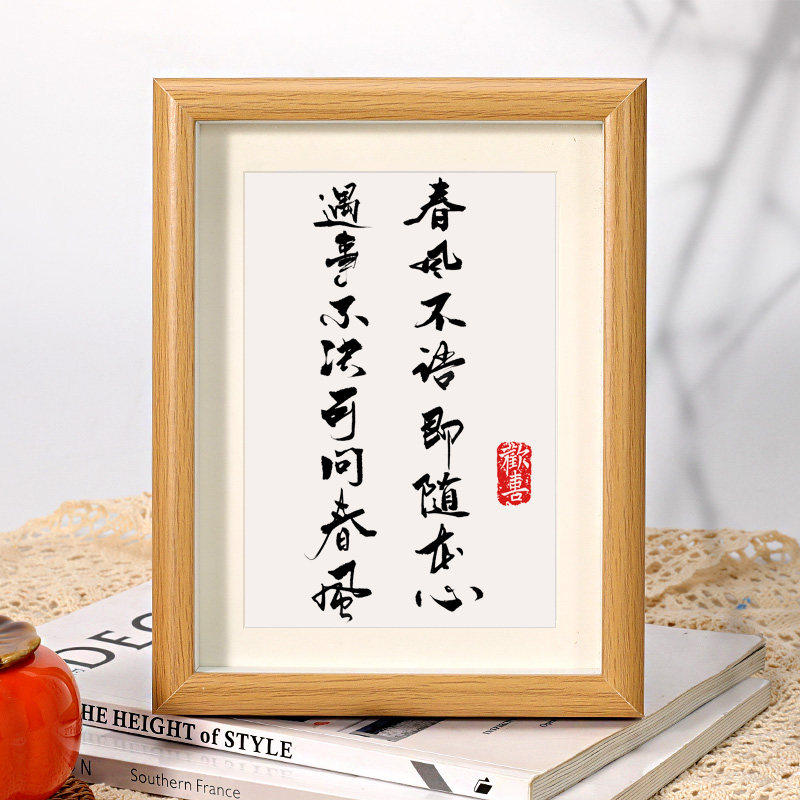 遇事不决可问春風
春风不语即随本心
歡喜
HE HEIGHT of STYLE
N Southern France